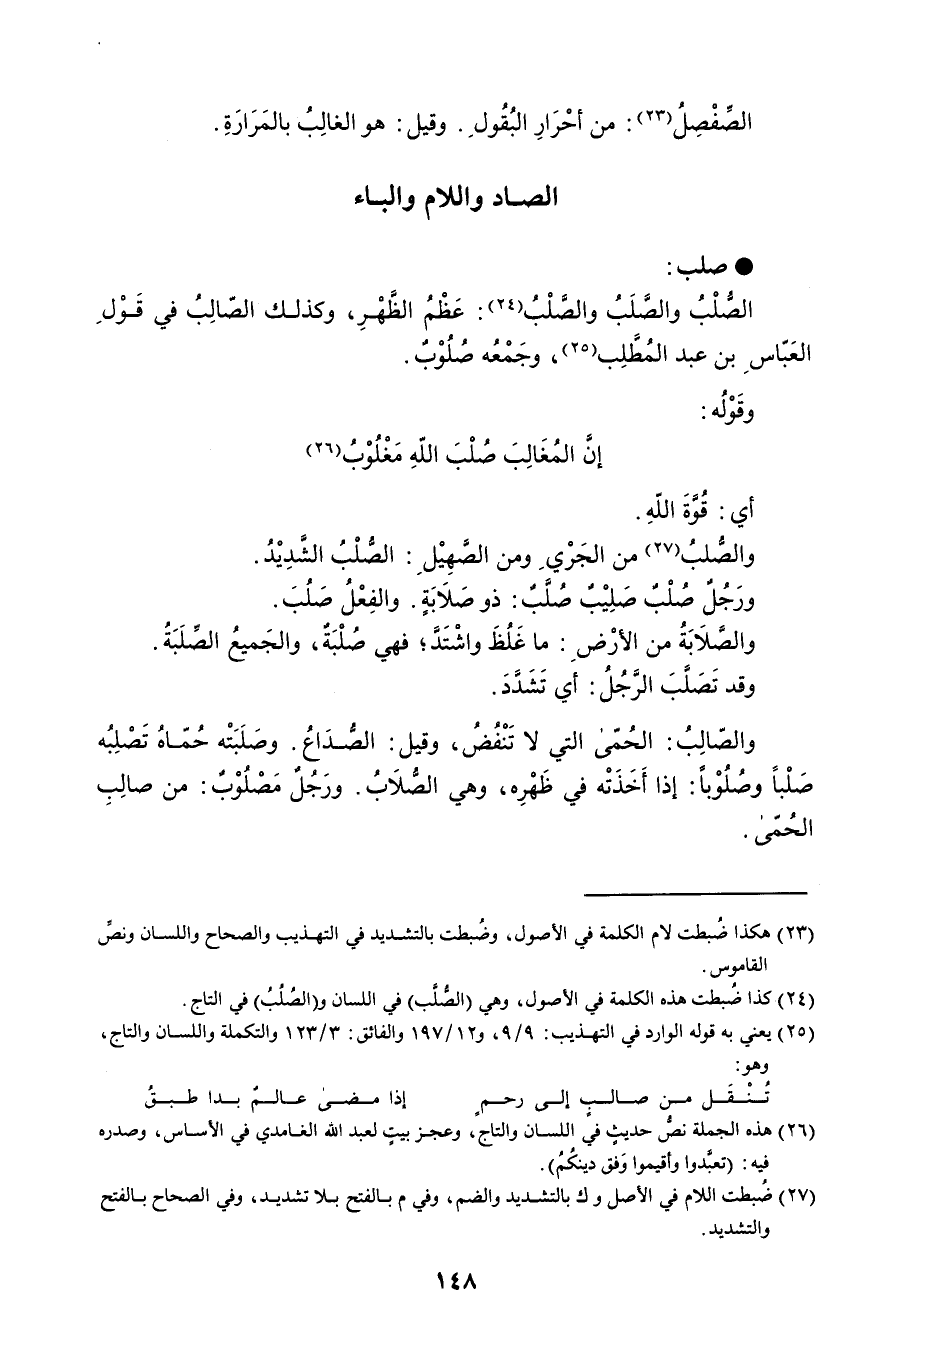 الصِّفْصِلُ(٢٣): من أحْرَارِ البُقُولِ. وقيل: هو الغالِبُ بالمَرَارَةِ.
الصاد واللام والباء
● صلب:
الصُّلْبُ والصَّلَبُ والصَّلْبُ(٢٤): عَظْمُ الظَّهْرِ، وكذلك الصّالِبُ في قَوْلِ
العَبّاسِ بن عبد المُطَّلِب(٢٥)، وجَمْعُه صُلُوْبٌ.
وقَوْلُه:
إنَّ المُغَالِبَ صُلْبَ اللّهِ مَغْلُوْبُ(٢٦)
أي: قُوَّةَ اللّهِ.
والصُّلبُ(٢٧) من الجَرْيِ ومن الصَّهِيْلِ: الصُّلْبُ الشَّدِيْدُ.
ورَجُلٌ صُلْبٌ صَلِيْبٌ صُلَّبٌ: ذو صَلَابَةٍ. والفِعْلُ صَلُبَ.
والصَّلَابَةُ من الأرْضِ: ما غَلُظَ واشْتَدَّ؛ فهي صُلْبَةٌ، والجَميعُ الصِّلَبَةُ.
وقد تَصَلَّبَ الرَّجُلُ: أي تَشَدَّدَ.
والصّالِبُ: الحُمّىٰ التي لا تَنْفُضُ، وقيل: الصُّدَاعُ. وصَلَبَتْه حُمّاهُ تَصْلِبُه
صَلْباً وصُلُوْباً: إذا أَخَذَتْه في ظَهْرِه، وهي الصُّلَابُ. ورَجُلٌ مَصْلُوْبٌ: من صالِبِ
الحُمّىٰ.
(٢٣) هكذا ضُبطت لام الكلمة في الأصول، وضُبطت بالتشديد في التهذيب والصحاح واللسان ونصِّ
القاموس.
(٢٤) كذا ضُبطت هذه الكلمة في الأصول، وهي (الصُّلَّب) في اللسان و(الصُلُبُ) في التاج.
(٢٥) يعني به قوله الوارد في التهذيب: ٩/٩، و١٩٧/١٢ والفائق: ١٢٣/٣ والتكملة واللسان والتاج،
وهو:
تُنْقَل من صالبٍ إلى رحمٍ إذا مضىٰ عالمٌ بدا طبقُ
(٢٦) هذه الجملة نصُّ حديثٍ في اللسان والتاج، وعجز بيتٍ لعبد الله الغامدي في الأساس، وصدره
فيه: (تعبَّدوا وأقيموا وَفق دينكُمُ).
(٢٧) ضُبطت اللام في الأصل و ك بالتشديد والضم، وفي م بالفتح بلا تشديد، وفي الصحاح بالفتح
والتشديد.
١٤٨